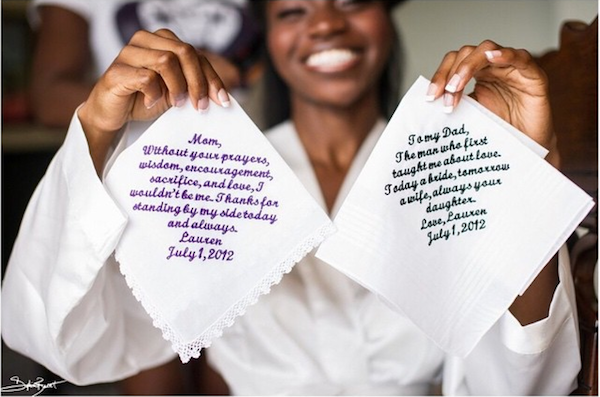 Mom,
Without your prayers,
wisdom, encouragement,
sacrifice, and love, I
wouldn't be me. Thanks for
standing by my side today
and always.
Lauren
July 1, 2012
To my Dad,
The man who first
taught me about love.
Today a bride, tomorrow
a wife, always your
daughter.
Love, Lauren
July 1, 2012